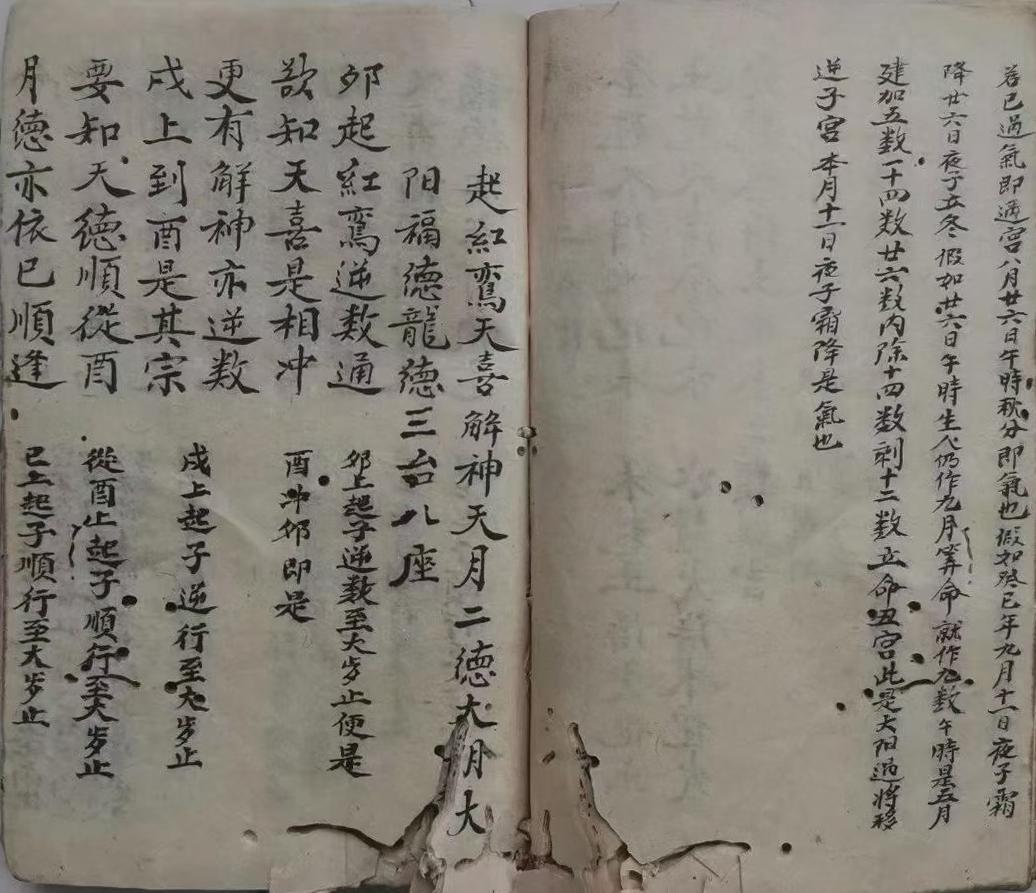 若已過氣即過宮八月廿六日午時秋分即氣也假如癸巳年九月十一日夜子霜
降廿六日夜子立冬假如廿六日午時生人仍作九月筭命就作九数午時是五月
建加五数一十四数廿六数内除十四数剩十二数立命丑宮此是太阳過將移
逆子宮本月十一日夜子霜降是氣也
起紅鸞天喜解神天月二德大月大
阳福德龍德三台八座
夘起紅鸞逆数通 夘上起子逆数至大岁止便是
欲知天喜是相冲 酉冲夘即是
更有解神亦逆数
戌上到酉是其宗 戌上起子逆行至大岁止
要知天德順從酉 從酉上起子順行至大岁止
月德亦依巳順逢 巳上起子順行至大岁止